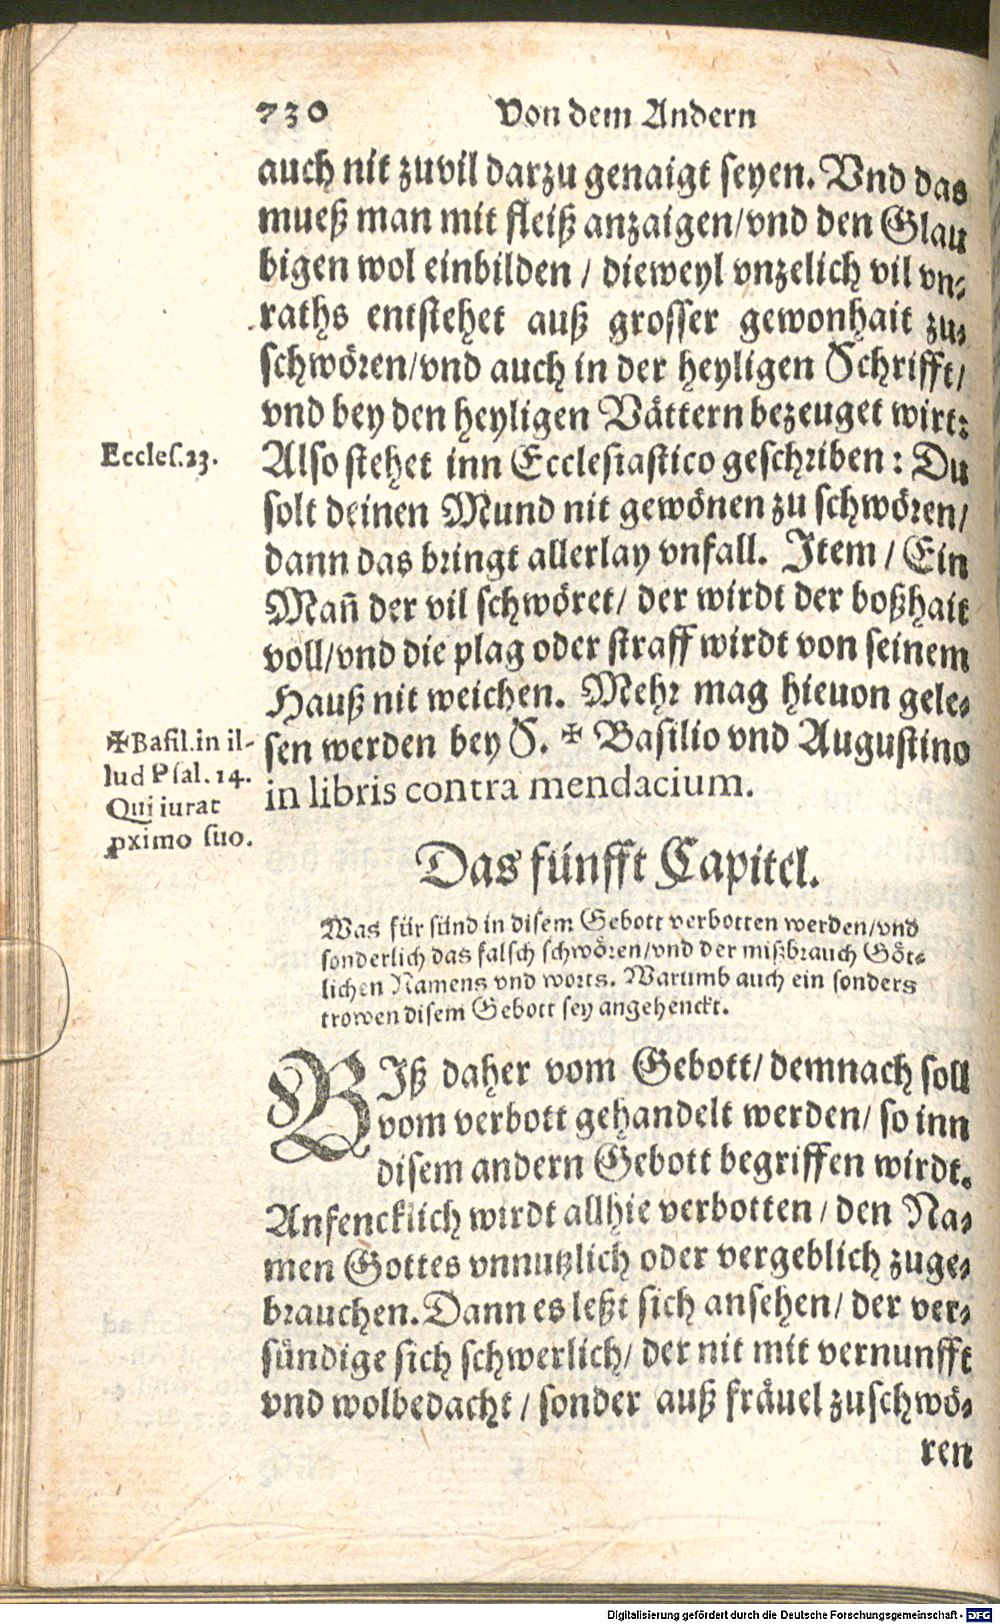 730 Von dem Andern
auch nit zuvil darzu genaigt seyen. Vnd das
mueß man mit fleiß anzaigen/vnd den Glau
bigen wol einbilden / dieweyl vnzelich vil vn⸗
raths entstehet auß grosser gewonhait zu⸗
schwören/vnd auch in der heyligen Schrifft/
vnd bey den heyligen Vättern bezeuget wirt:
Eccles.23.
Also stehet inn Ecclesiastico geschriben: Du
solt deinen Mund nit gewönen zu schwören/
dann das bringt allerlay vnfall. Item / Ein
Mañ der vil schwöret/ der wirdt der boßhait
voll/vnd die plag oder straff wirdt von seinem
Hauß nit weichen. Mehr mag hieuon gele⸗
sen werden bey S. ✠ Basilio vnd Augustino
in libris contra mendacium.
✠Basil.in il-
lud Psal.14.
Qui iurat
ꝓximo suo.
Das fünfft Capitel.
Was für sünd in disem Gebott verbotten werden/vnd
sonderlich das falsch schwören/vnd der mißbrauch Göt⸗
lichen Namens vnd worts. Warumb auch ein sonders
trowen disem Gebott sey angehenckt.
BIß daher vom Gebott/ demnach soll
vom verbott gehandelt werden/ so inn
disem andern Gebott begriffen wirdt.
Anfencklich wirdt allhie verbotten / den Na⸗
men Gottes vnnutzlich oder vergeblich zuge⸗
brauchen. Dann es leßt sich ansehen/ der ver⸗
sündige sich schwerlich/ der nit mit vernunfft
vnd wolbedacht / sonder auß fräuel zuschwö⸗
ren
Digitalisierung gefördert durch die Deutsche Forschungsgemeinschaft - DFG